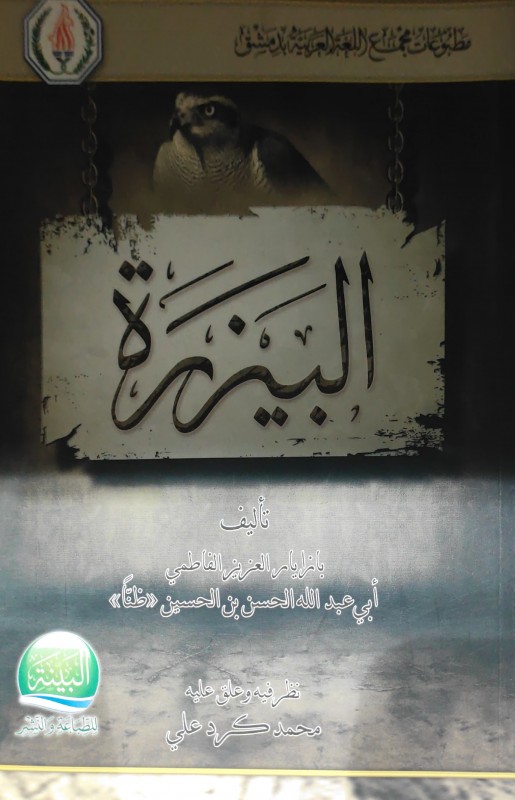 مطبوعات مجمع اللغة العربية بدمشق
البيزرة
تأليف
بازيار العزيز الفاطمي
أبي عبد الله الحسن بن الحسين «ظنًّا»
نظر فيه وعلق عليه
محمد كرد علي
البينة
للطباعة والنشر